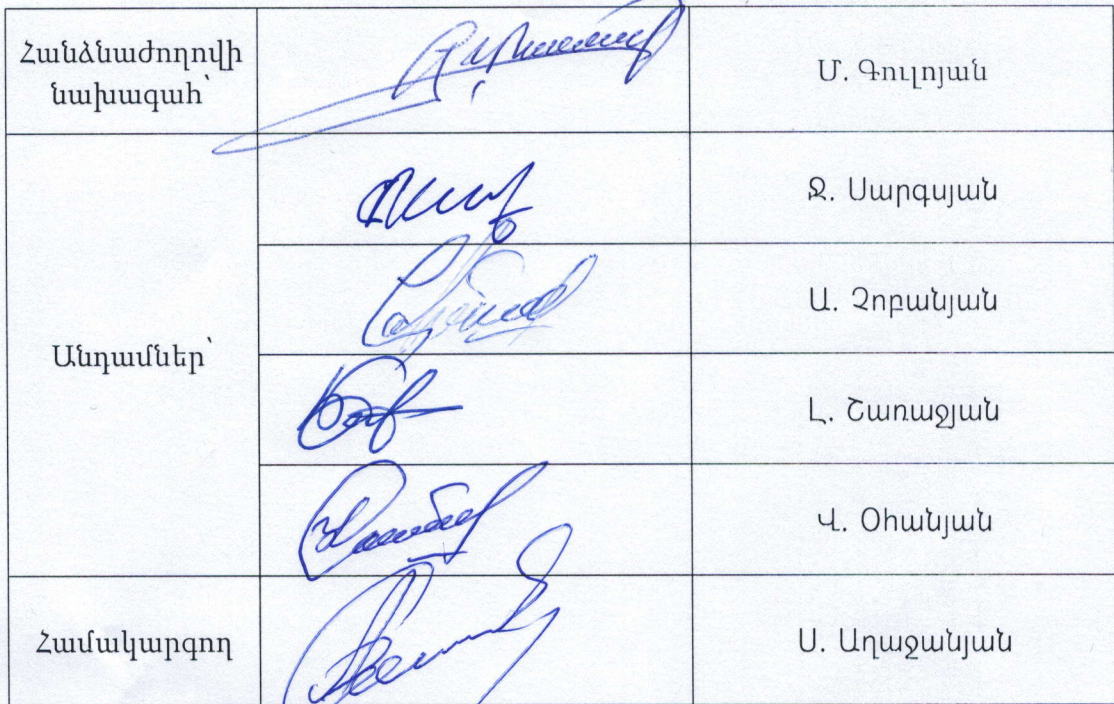 Հանձնաժողովի
նախագահ՝
Մ. Գուլոյան
Անդամներ՝
Ջ. Սարգսյան
Ա. Չոբանյան
Լ. Շառաջյան
Վ. Օհանյան
Համակարգող
Ս. Աղաջանյան